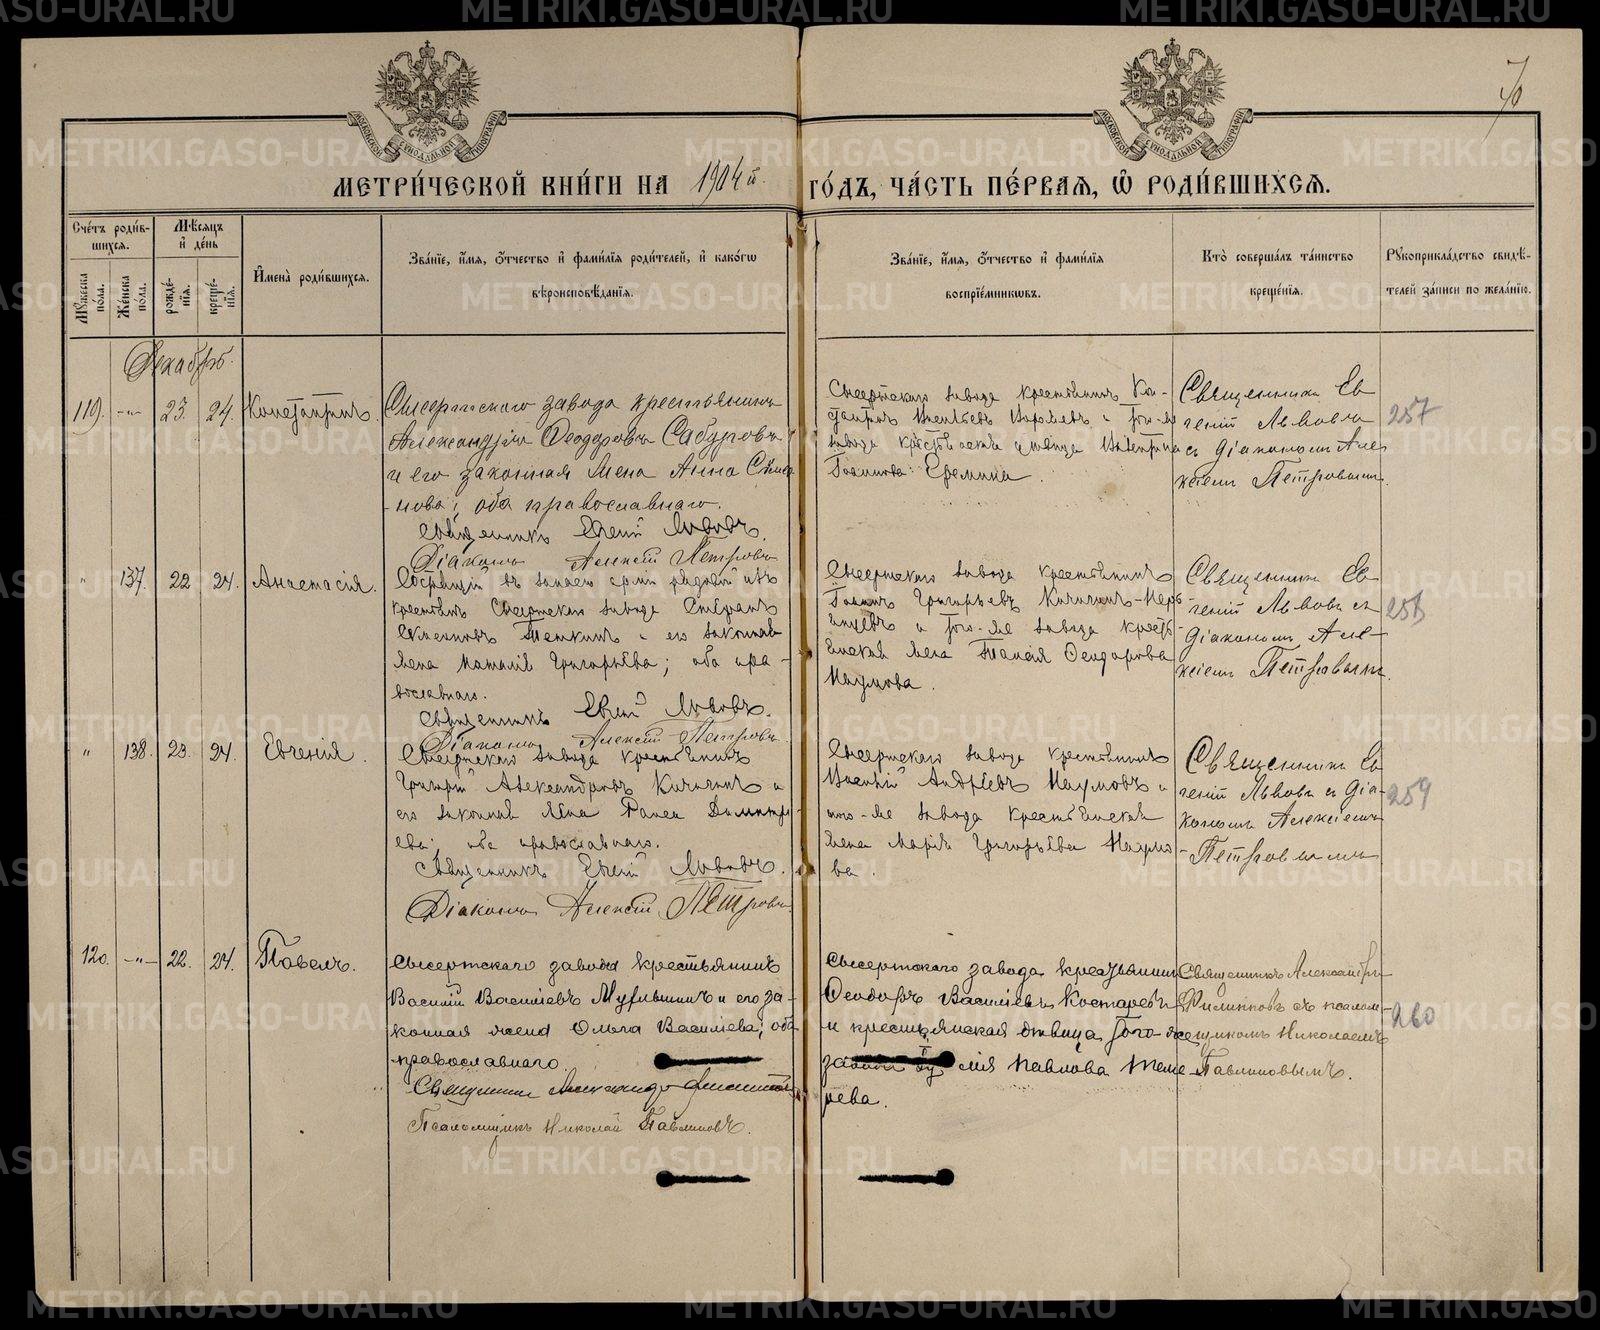 70
МЕТРИ́ЧЕСКОЙ КНИ́ГИ НА 1904 й. ГО́ДЪ, ЧА́СТЬ ПЕ́РВАЯ, Ѡ РОДИ́ВШИХСЯ.
Сче́тъ роди́вшихся.
Му́жеска по́ла.
Же́нска по́ла.
Мѣ́сяцъ и де́нь
рожде́нія.
креще́нія.
Имена̀ роди́вшихся.
Зва́ніе, и́мя, о́тчество и фами́лія роди́телей, и како́гѡ
вѣроисповѣ́данія.
Зва́ніе, и́мя, о́тчество и фами́лія
воспріе́мниковъ.
Кто̀ соверша́лъ та́инство
креще́нія.
Рукоприкла́дство свидѣ́-
телей за́писи по жела́нію.
Декабрь.
119. -"- 23. 24. Константинъ.
Сысертскаго завода крестьянинъ
Александръ Ѳеодоровъ Сабуровъ
и его законная жена Анна Симео
нова; оба православнаго.
Священникъ Евгеній Львовъ.
Діаконъ Алексій Петровъ
Сысертскаго завода крестьянинъ Кон-
стантинъ
завода крестьянская дѣвица
Іоаннова Еремина.
Священникъ Ев
геній Львовъ
съ діакономъ Але
ксіемъ Петровымъ.
257
" 137. 22. 24. Анастасія.
Состоящій въ запасѣ арміи рядовой изъ
крестьянъ Сысертскаго завода Стефанъ
и его законная
жена Наталія Григорьева; оба пра-
вославнаго.
Священникъ Евгеній Львовъ.
Діаконъ Алексій Петровъ.
Сысертскаго завода крестьянинъ
Іоаннъ Григорьевъ
и того-же завода кресть
янская жена Таисія Ѳеодорова
Наумова.
Священникъ Ев
геній Львовъ съ
діакономъ Але-
ксіемъ Петровымъ.
258
" 138. 23. 24. Евгенія.
Сысертскаго завода крестьянинъ
Григорій Александровъ Кичигинъ и
его законная жена Раиса Димитрі
ева; оба православнаго.
Священникъ Евгеній Львовъ.
Діаконъ Алексій Петровъ.
Сысертскаго завода крестьянинъ
Андреевъ Наумовъ и
того-же завода крестьянская
жена Марія Григорьева Наумо
ва.
Священникъ Ев
геній Львовъ съ діа-
кономъ Алексіемъ
Петровымъ
259
120. -"- 22. 24. Павелъ.
Сысертскаго завода крестьянинъ
Василій Васильевъ и его за-
конная жена Ольга Васильева; оба
православнаго.
Священникъ Александръ
Псаломщикъ Николай Павлиновъ.
Сысертскаго завода крестьянинъ
Ѳеодоръ Васильевъ Костаревъ
и крестьянская дѣвица того-же
завода Павлова Теме
рева.
Священникъ Александръ
съ псалом-
щикомъ Николаемъ
Павлиновымъ.
260